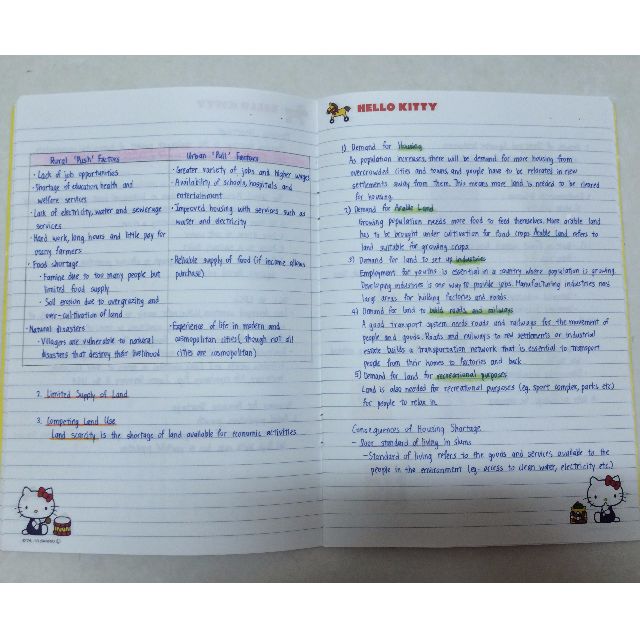 Rural 'Push' Factors
Urban 'Pull' Factors
· Lack of job opportunities
· Shortage of education, health and
welfare services
· Lack of electricity, water and sewerage
services
· Hard work, long hours and little pay for
many farmers
· Food shortage
· Famine due to too many people but
limited food supply
· Soil erosion due to overgrazing and
over-cultivation of land
· Natural disasters
· Villagers are vulnerable to natural
disasters that destroy their livelihood
· Greater variety of jobs and higher wages
· Availability of schools, hospitals and
entertainment
· Improved housing with services such as
water and electricity
· Reliable supply of food (if income allows
purchase)
· Experience of life in modern and
cosmopolitan cities (though not all
cities are cosmopolitan)
2. Limited Supply of Land
3. Competing Land Use
Land scarcity is the shortage of land available for economic activities
HELLO KITTY
1) Demand for Housing
As population increases, there will be demand for more housing from
overcrowded cities and towns, and people have to be relocated in new
settlements away from them. This means more land is needed to be cleared
for housing.
2) Demand for Arable Land
Growing population needs more food to feed themselves. More arable land
has to be brought under cultivation for food crops. Arable Land refers to
land suitable for growing crops
3) Demand for land to set up industries
Employment for youths is essential in a country where population is growing.
Developing industries is one way to provide jobs. Manufacturing industries need
large areas for building factories and roads
4) Demand for land to build roads and railways
A good transport system needs roads and railways for the movement of
people and goods. Roads and railways to new settlements or industrial
estate builds a transportation network that is essential to transport
people from their homes to factories and back
5) Demand for land for recreational purposes
Land is also needed for recreational purposes (eg. sport complex, parks etc)
for people to relax in.
Consequences of Housing Shortage
- Poor standard of living in slums
- Standard of living refers to the goods and services available to the
people in the environment (eg- access to clean water, electricity etc.)